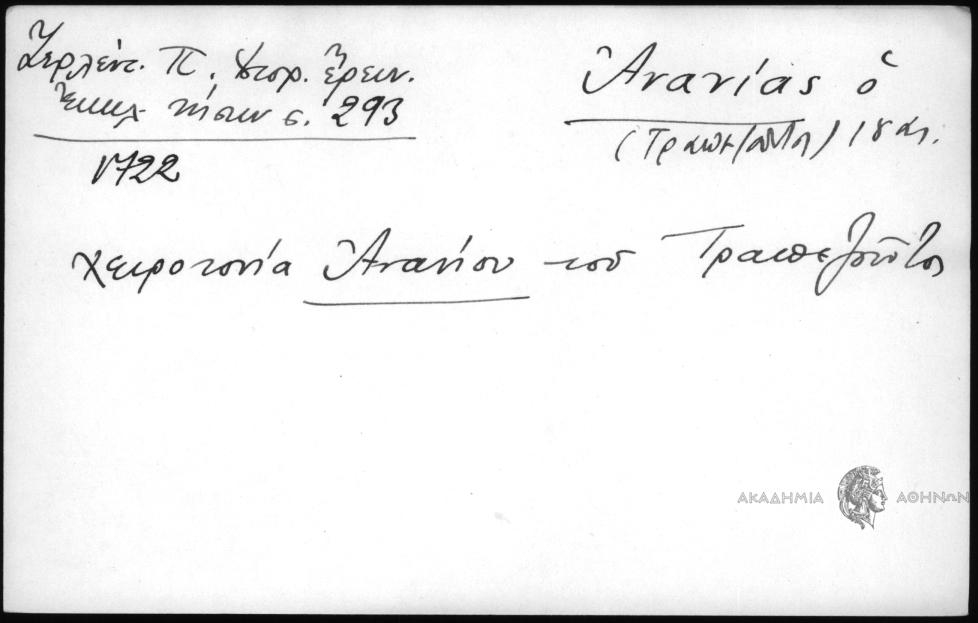 Ζερλέντ. Π. Ἱστορ. Ἔρευν.
Ἐκκλ. νήσων σ. 293
1722
Ἀνανίας ὁ
(Τραπεζοῦντος) 18 αἰ.
χειροτονία Ἀνανίου τοῦ Τραπεζοῦντος
ΑΚΑΔΗΜΙΑ ΑΘΗΝΩΝ